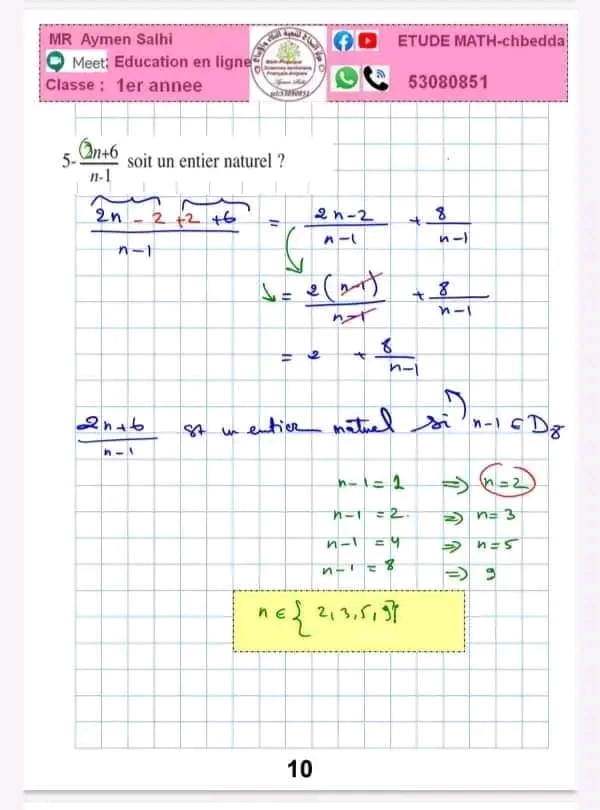 MR Aymen Salhi
Meet: Education en ligne
Classe : 1er annee
ETUDE MATH-chbedda
53080851
5- 2n+6 / n-1 soit un entier naturel ?
2n - 2 + 2 + 6 / n-1 = 2n-2 / n-1 + 8 / n-1
= 2(n-1) / n-1 + 8 / n-1
= 2 + 8 / n-1
2n+6 / n-1 st un entier naturel si n-1 ∈ D8
n-1 = 1 ⇒ n=2
n-1 = 2 ⇒ n=3
n-1 = 4 ⇒ n=5
n-1 = 8 ⇒ 9
n ∈ { 2, 3, 5, 9}
10